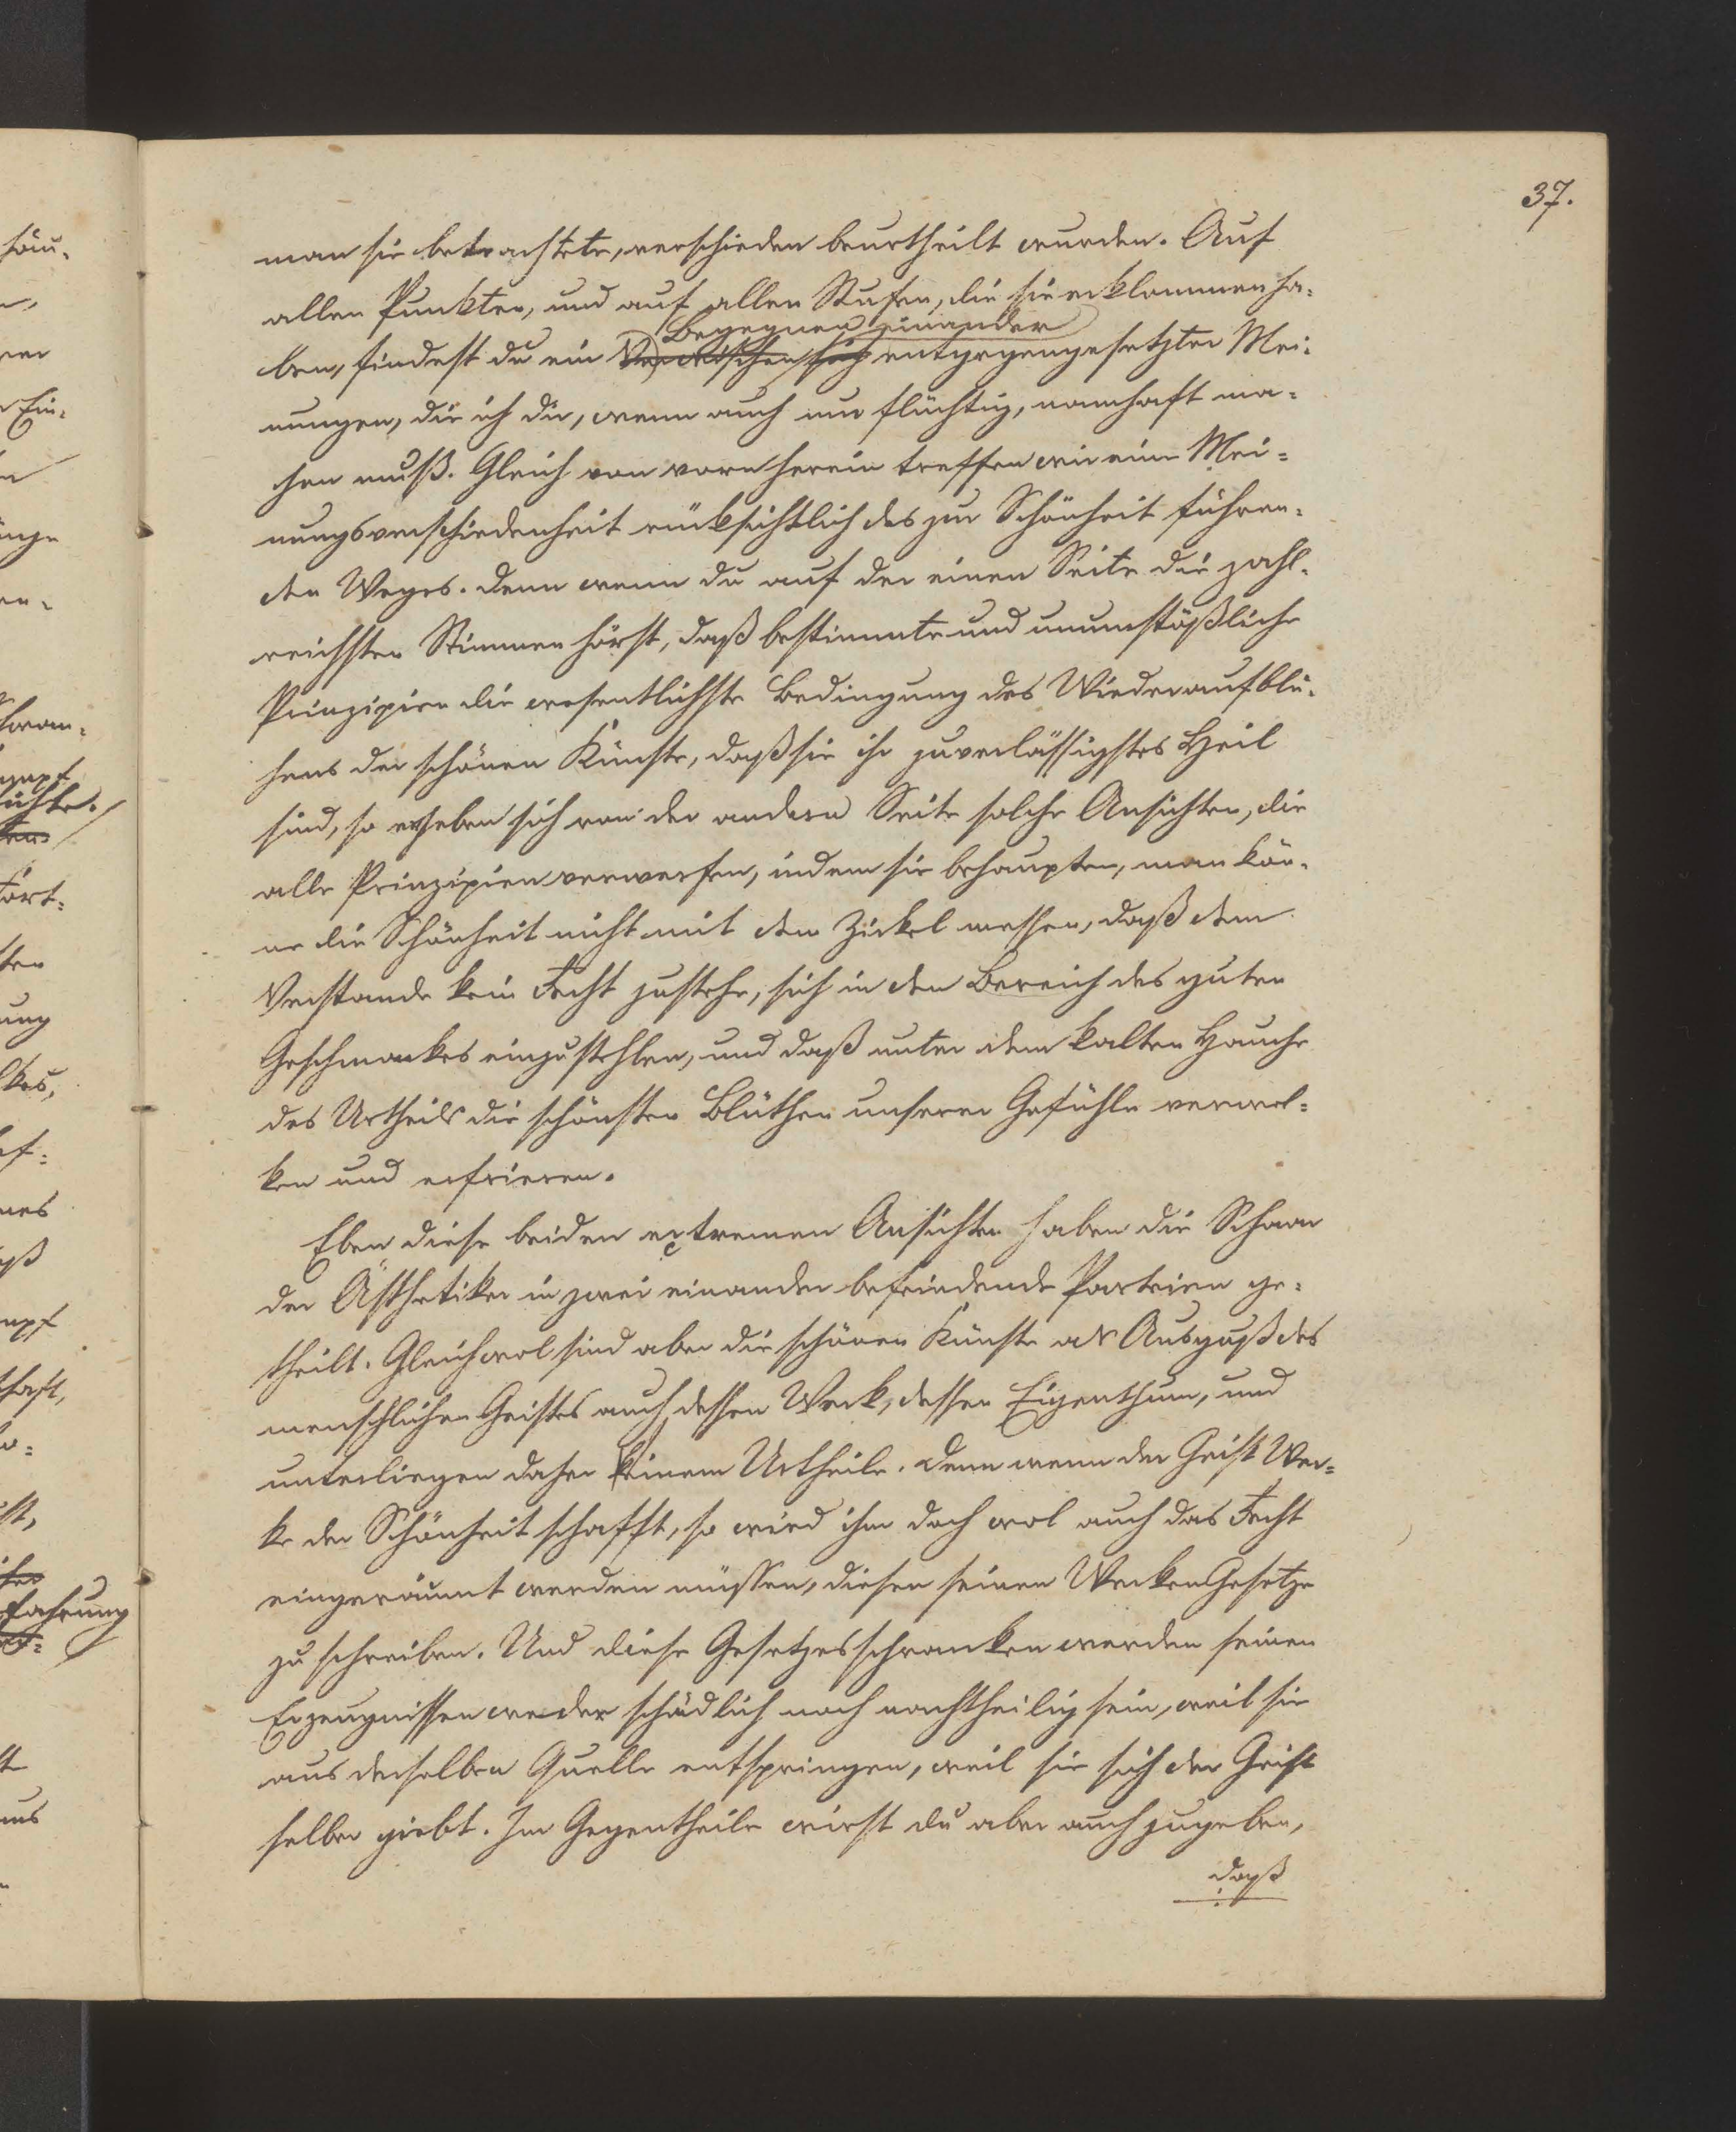 37.
man sie betrachtete, verschieden beurtheilt wurden. Auf
allen Punkten, und auf allen Stufen, die sie erklommen ha-
Begegnen einander
ben, findest du ein sich entgegengesetzter Mei-
nungen, die ich dir, wenn auch nur flüchtig, namhaft ma-
chen muß. Gleich von vorn herein treffen wir eine Mei-
nungsverschiedenheit rücksichtlich des zur Schönheit führen-
den Weges. Denn wenn du auf der einen Seite die zahl-
reichsten Stimmen hörst, daß bestimmte und unumstößliche
Prinzipien die wesentlichste Bedingung des Wiederaufblü-
hens der schönen Künste, daß sie ihr zuverlässigstes Heil
sind, so erheben sich von der andern Seite solche Ansichten, die
alle Prinzipien verwerfen, indem sie behaupten, man kön-
ne die Schönheit nicht mit dem Zirkel messen, daß dem
Verstande kein Recht zustehe, sich in den Bereich des guten
Geschmackes einzustehlen, und daß unter dem kalten Hauche
des Urtheils die schönsten Blüthen unserer Gefühle verwel-
ken und erfrieren.
Eben diese beiden extremen Ansichten haben die Schaar
der Ästhetiker in zwei einander befeindende Parteien ge-
theilt. Gleichwol sind aber die schönen Künste als Ausguß des
menschlichen Geistes auch dessen Werk, dessen Eigenthum, und
unterliegen daher seinem Urtheile. Denn wenn der Geist Wer-
ke der Schönheit schafft, so wird ihm doch wol auch das Recht
eingeräumt werden müssen, diesen seinen Werken Gesetze
zu schreiben. Und diese Gesetzesschranken werden seinen
Erzeugnissen weder schädlich noch nachtheilig sein, weil sie
aus derselben Quelle entspringen, weil sie sich der Geist
selber giebt. Im Gegentheile wirst du aber auch zugeben,
daß